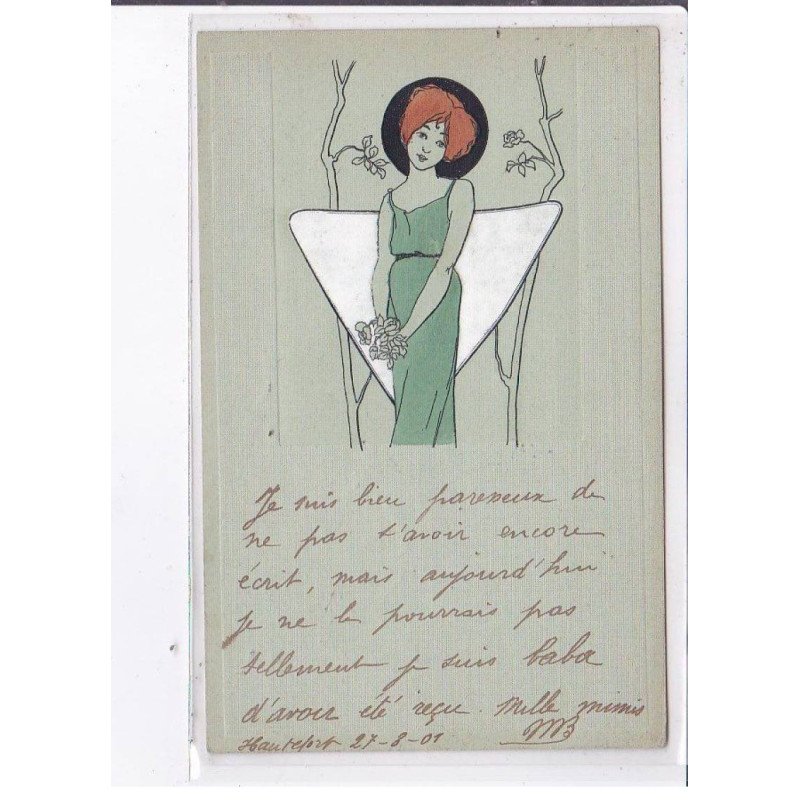 Je suis bien paresseux de
ne pas t'avoir encore
écrit, mais aujourd'hui
je ne le pourrais pas
tellement je suis baba
d'avoir été reçu. Mille mimis
MB
Hautefort 27-8-01